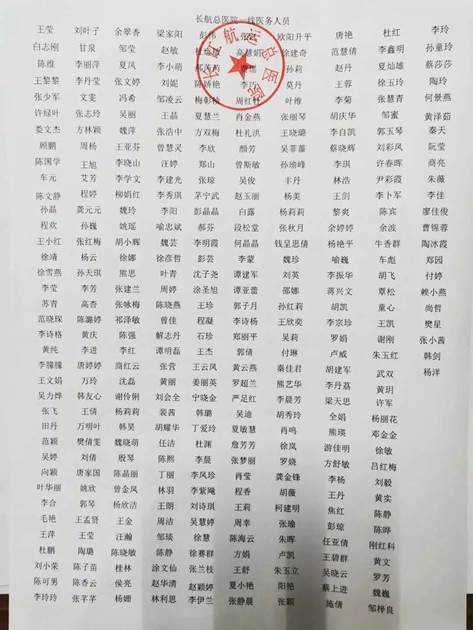 长航总医院一线医务人员
王莹 刘叶子 余翠香 梁家阳 彭伟 张 欧阳升平 唐艳 杜红 李玲
白志刚 甘泉 邹莹 赵敏 杜 高慧娟 徐建奇 范慧倩 李鑫明 孙童玲
陈维 李丽萍 夏凤 李小萌 郝 孙莉 赵丹 张 蔡莎莎
王黎黎 李丹莹 张文婷 刘妮 陈 李巧 莫丹 王蓉 徐玉玲 陶玲
张少军 文雯 冯希 邹凌云 梅 周红 叶维 李菊 张慧 何景燕
许绿叶 张志玲 吴丽 王晶 夏慧兰 肖金燕 张丽琴 胡庆华 邹蜜 黄泽茹
娄文杰 方林颖 魏萍 张浩中 方双梅 杜礼洪 王晓璐 李自凯 郭玉琴 秦天
顾鹏 周杨 王亚芬 曾慧灵 李欣 颜芳 吴菲 蔡晓辉 刘彩凤 阮莹
陈国学 王旭 李晓山 汪婷 郑山 曾斯敏 孙瑜峰 李琪 许春晖 商亮
车元 艾芳 李学文 李建光 张琼 吴俊 丰丹 林浩 尹彩霞 朱薇
陈文静 程婷 柳娟红 李秀琪 茅宁武 赵玉丽 杨美 王剑 李卜军 李佳
孙晶 龚元元 魏玲 李阳 彭晶晶 白露 杨莉莉 黎炎 陈宾 廖佳俊
程欢 孙巍 姚瑶 喻忠斌 郝芬 段松堂 张秋月 余婷婷 余波 曹锦蓉
王小红 张红梅 胡小辉 魏芸 李明霞 何晶晶 钱呈思倩 杨艳平 牛香群 陶冰霞
徐靖 杨云 徐娜 徐彦哲 彭芸 李蒙 魏珍 喻巍 车彪 郑园
徐雪燕 孙天琪 熊思 叶青 沈子尧 谭建军 刘英 李振华 胡飞 付婷
李莹 李芳 张建兰 周婷 涂圣旭 谭亚蕾 邵娜 蒋兴文 覃松 赖小燕
苏青 高杳 张咏梅 陈晓燕 王珍 郭子月 孙红莉 胡凯 童心 尚哲
范晓琛 陈潞婷 祁泽敏 曾佳 程凝 李诗杨 王欣奕 李宗珍 王凯 樊星
李诗格 黄庆 陈强 解志丹 石珍 郑丽平 吴莉 罗娟 谢刚 张小茜
黄纯 李进 李红 谭明磊 王杰 郭倩 付琳 卢威 朱玉红 韩剑
李朦朦 唐婷婷 商红云 张营 王云凤 黄云燕 秦佳君 胡建军 武双 杨洋
王文娟 万玲 沈磊 黄丽 姜丽英 罗超兰 熊艺华 李丹荔 黄玥
吴力烨 韩友心 谢伶俐 刘会全 宁晓金 严足红 李晨芳 梁天思 许军
张飞 王倩 杨莉莉 裴茜 韩璐 吴迪 胡秀玲 全娟 杨丽花
田丹 万明叶 韩昊 胡耀华 丁爱玲 夏敏慧 肖鸣 熊瑛 邓金金
范颖 樊倩雯 魏晓萌 任洁 杜渊 詹芳芳 徐岚 游佳明 徐敏
吴婷 刘倩 殷琴 陈熙 李晨 张梦丽 罗娆 方舒敏 吕红梅
向颖 唐家国 陈晶丽 丁丽 李凤珍 肖莹 龚金锋 李杨 刘毅
叶华丽 姚欣 曾金凤 林羽 李紫飚 程香 胡薇 王丹 黄实
李合 郭琴 杨欣洁 王朗 刘诗琪 王莉 柯建明 焦红 陈静
毛艳 王孟贤 王金 周洁 吴慧婷 周幸 张瑜 彭琼 陈晔
王萍 王莹 汪瀚 邹琰 徐慧 陈海云 朱晖 任亚倩 刚红科
杜鹏 陶璐 陈晓敏 陈静 徐赛群 方娟 卢凯 王碧群 黄文
刘小荣 陈子苗 桂林 涂文仙 张兰枝 王舒 朱玉立 吴晓云 罗芳
陈可男 陈香云 侯亮 赵华清 赵颖婷 夏小艳 阳艳 蔡上进 魏巍
李玲玲 张芊芊 杨姗 林利思 李伊兰 张静晨 张颖 施倩 邹梓良